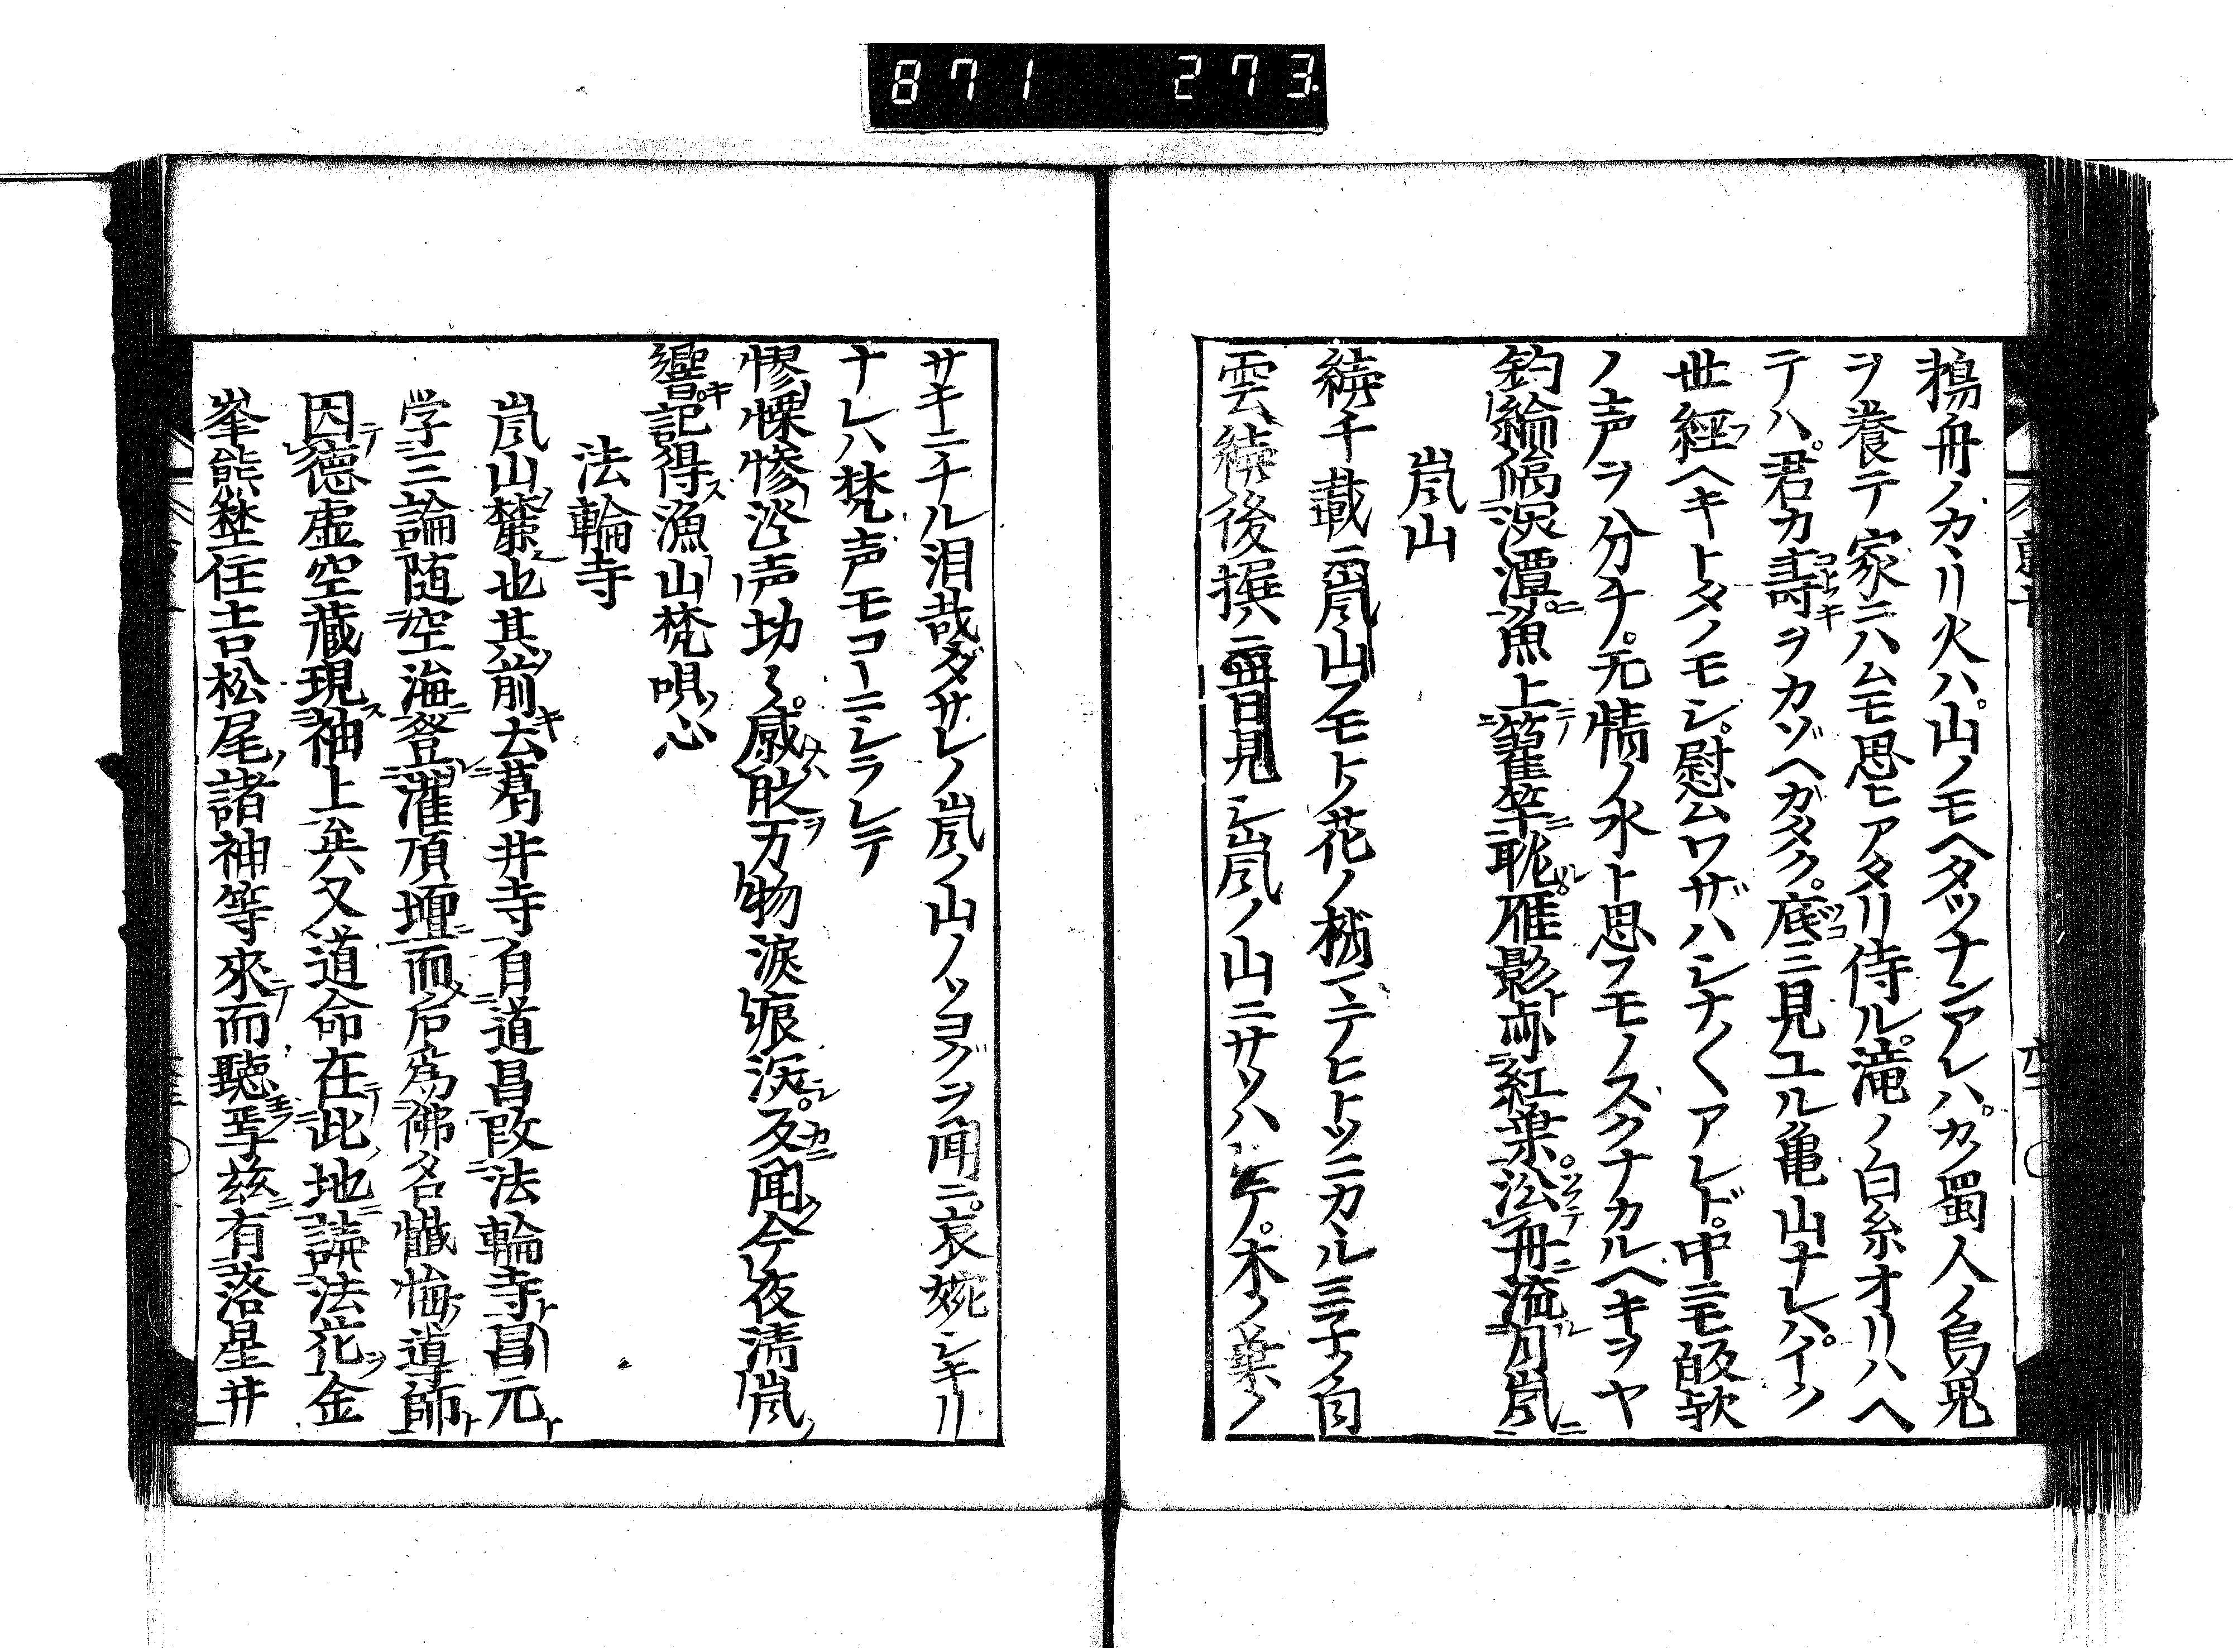 871 273
鵜舟ノカヽリ火ハ。山ノモヘタツナンアレハ。カノ蜀人ノ烏鬼
ヲ養テ家ニハムモ思ヒアタリ侍ル。滝ノ白糸オリハヘ
テハ。君カ壽ヲカゾヘガタク。底ニ見ユル亀山ナレハ。イク
世経ヘキトタノモシ。慰ムワザハシナ〱アレド。中ニモ
ノ声ヲ分チ。无情ノ水ト思フモノスクナカルヘキヲヤ
釣綸潭魚上竿眺雁影紅葉舟流月嵐
嵐山
続千載ニ嵐山フモトノ花ノ梢マテヒトツニカヽル
雲続後撰ニ昔見シ嵐ノ山ニサソハレテ。木ノ葉ノ
サキニチル泪哉ダサレノ嵐ノ山ノツヨグヲ聞ニ。哀婉シキリ
ナレハ梵声モコーニシラレテ
惨声功〻。感万物涙痕聞今夜清嵐
響。記得漁山梵唄心
法輪寺
嵐山麓也其前去葛井寺自道昌改法輪寺昌元
学三論随空海登灌頂壇而后為佛名懺悔導師
因徳虚空蔵現袖上矣又道命在此地誦法花金
峯熊埜住吉松尾諸神等来而聴焉茲有落星井